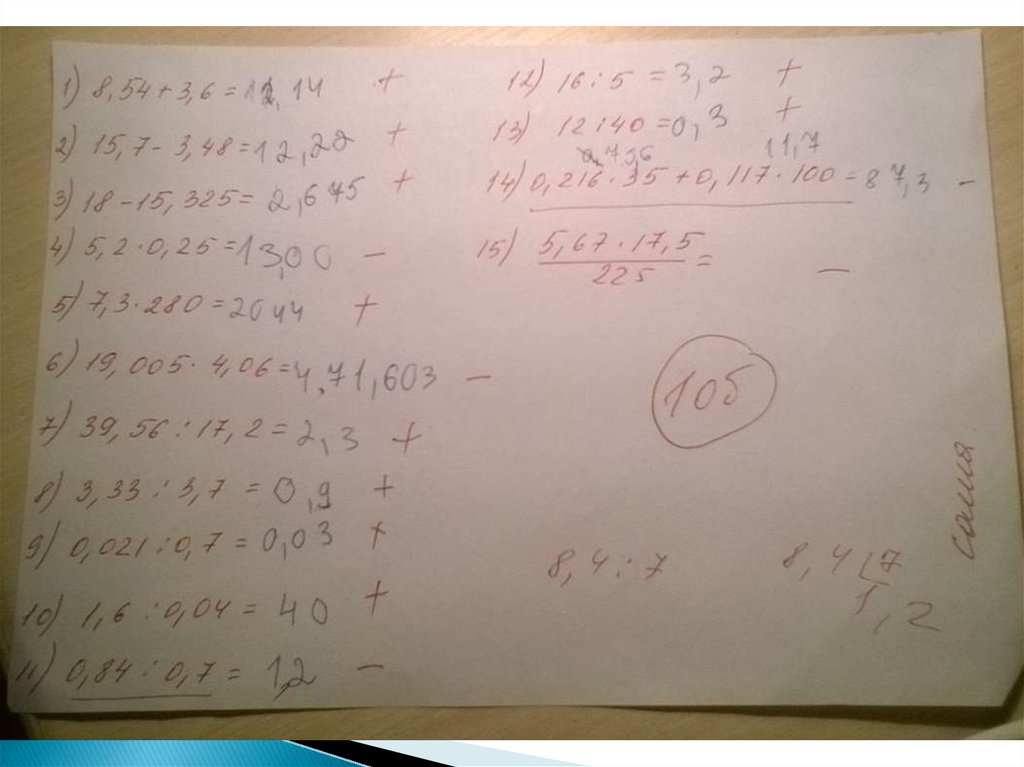 1) 8,54+3,6=12,14 +
2) 15,7-3,48=12,22 +
3) 18-15,325=2,675 +
4) 5,2·0,25=13,00 -
5) 7,3·280=2044 +
6) 19,005·4,06=4,71,603 -
7) 39,56:17,2=2,3 +
8) 3,33:3,7=0,9 +
9) 0,021:0,7=0,03 +
10) 1,6:0,04=40 +
11) 0,84:0,7=1,2 -
12) 16:5=3,2 +
13) 12:40=0,3 +
11,7
14) 0,216·35+0,117·100=87,3 -
15) 5,67·17,5
225 = -
10б
8,4:7
8,4 7
1,2